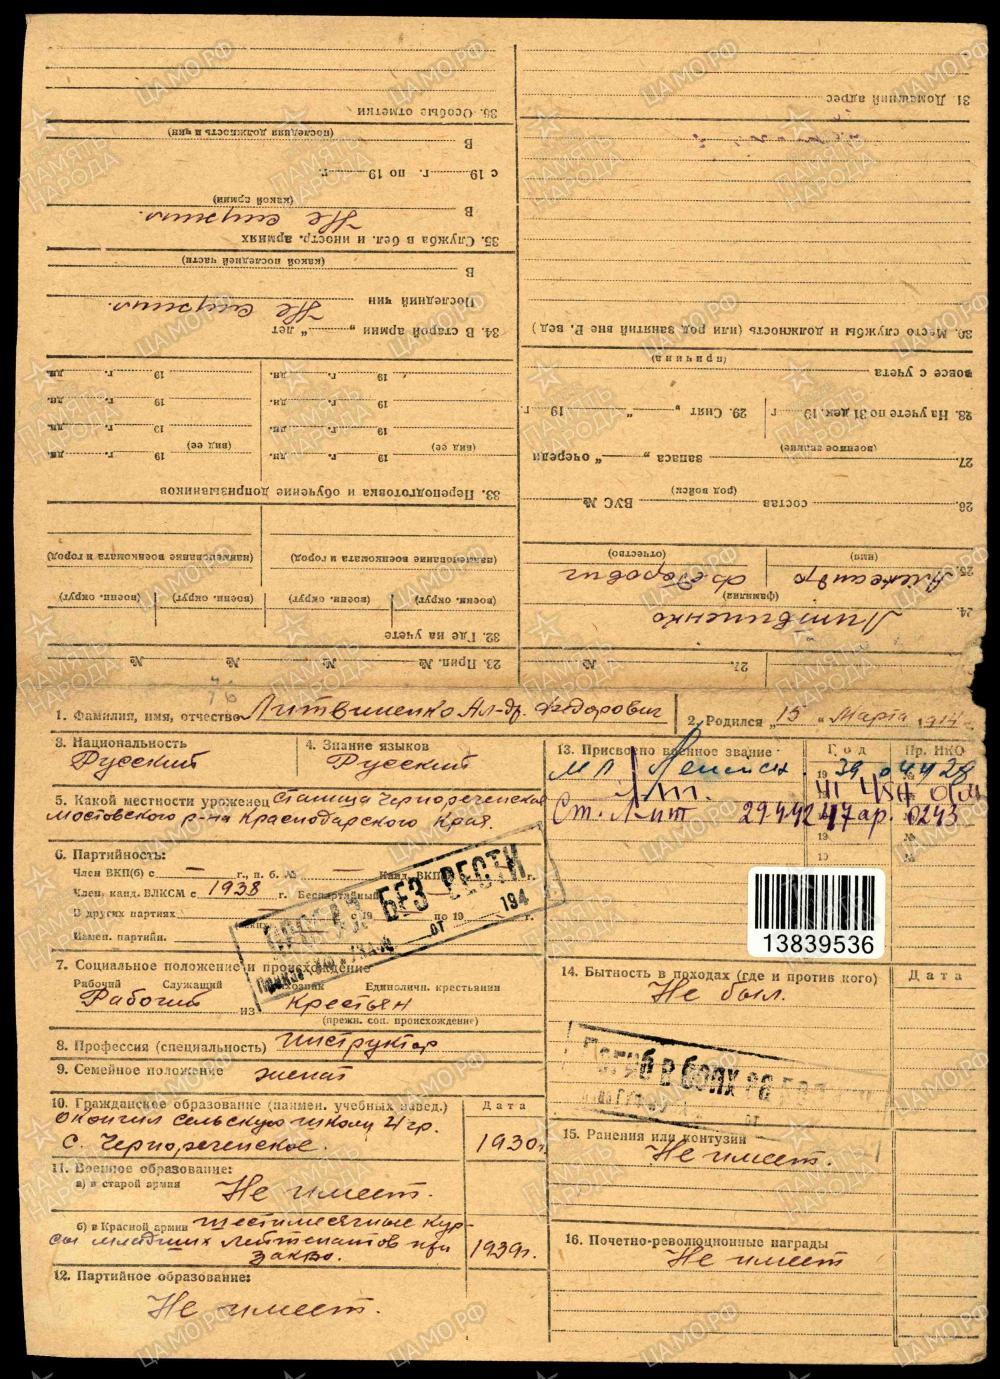 36. Особые отметки
(последняя должность и чин)
В
с 19 г. по 19 г.
(какой армии)
В Не служил.
35. Служба в бел. и иностр. армиях
(какой последней части)
В
Последний чин Не служил.
34. В старой армии „ “ лет
19 г. дн. 19 г. дн.
19 г. дн. 19 г. дн.
19 г. дн. 19 г. дн.
(вид ее) (вид ее)
19 г. дн. 19 г. дн.
33. Переподготовка и обучение допризывников
(наименование военкомата и город) (наименование военкомата и город)
(военн. округ) (военн. округ) (военн. округ) (военн. округ)
32. Где на учете
23. Прип. № № №
31. Домашний адрес
30. Место службы и должность (или род занятий вне Р. вед)
(причина)
вовсе с учета
28. На учете по 31 дек. 19 г 29. Снят „ “ 19 г.
(военное звание)
27 запаса „ “ очереди
(род войск)
26. состав ВУС №
(имя) (отчество)
25. Александр Федорович
(фамилия)
24. Литвиненко
27. №
1. Фамилия, имя, отчество Литвиненко Ал-др. Федорович
2. Родился „15 “ Марта 1914
3. Национальность
Русский
4. Знание языков
Русский
5. Какой местности уроженец станица Чернореченская
Мостовского р-на Краснодарского Края.
6. Партийность:
Член ВКП(б) с — г., п. б. № — Канд. ВКП г.
Член, канд. ВЛКСМ с 1938 г. Беспартийный
В других партиях с 19 по 19 г.
Измен. партийн.
ПРОПАЛ БЕЗ ВЕСТИ
от 194
7. Социальное положение и происхождение
Рабочий Служащий Колхозник Единоличн. крестьянин
Рабочий из Крестьян
(прежн. соц. происхождение)
8. Профессия (специальность) инструктор
9. Семейное положение женат
10. Гражданское образование (наимен. учебных завед.)
Дата
окончил сельскую школу 4 гр.
с. Чернореченское.
1930г.
11. Военное образование:
а) в старой армии Не имеет.
б) в Красной армии шестимесячные кур-
сы младших лейтенантов при
ЗакВо.
1939г.
12. Партийное образование:
Не имеет.
13. Присвоено военное звание
Год
Пр. НКО
Мл. Лейтен. 19 39 04428
Лт.
Ст. Лит 29.4.42 47ар. 0243
19 №
19 №
13839536
14. Бытность в походах (где и против кого)
Дата
Не был.
Погиб в боях за
15. Ранения или контузии
Не имеет.
16. Почетно-революционные награды
Не имеет
ЦАМО.РФ
ПАМЯТЬ НАРОДА